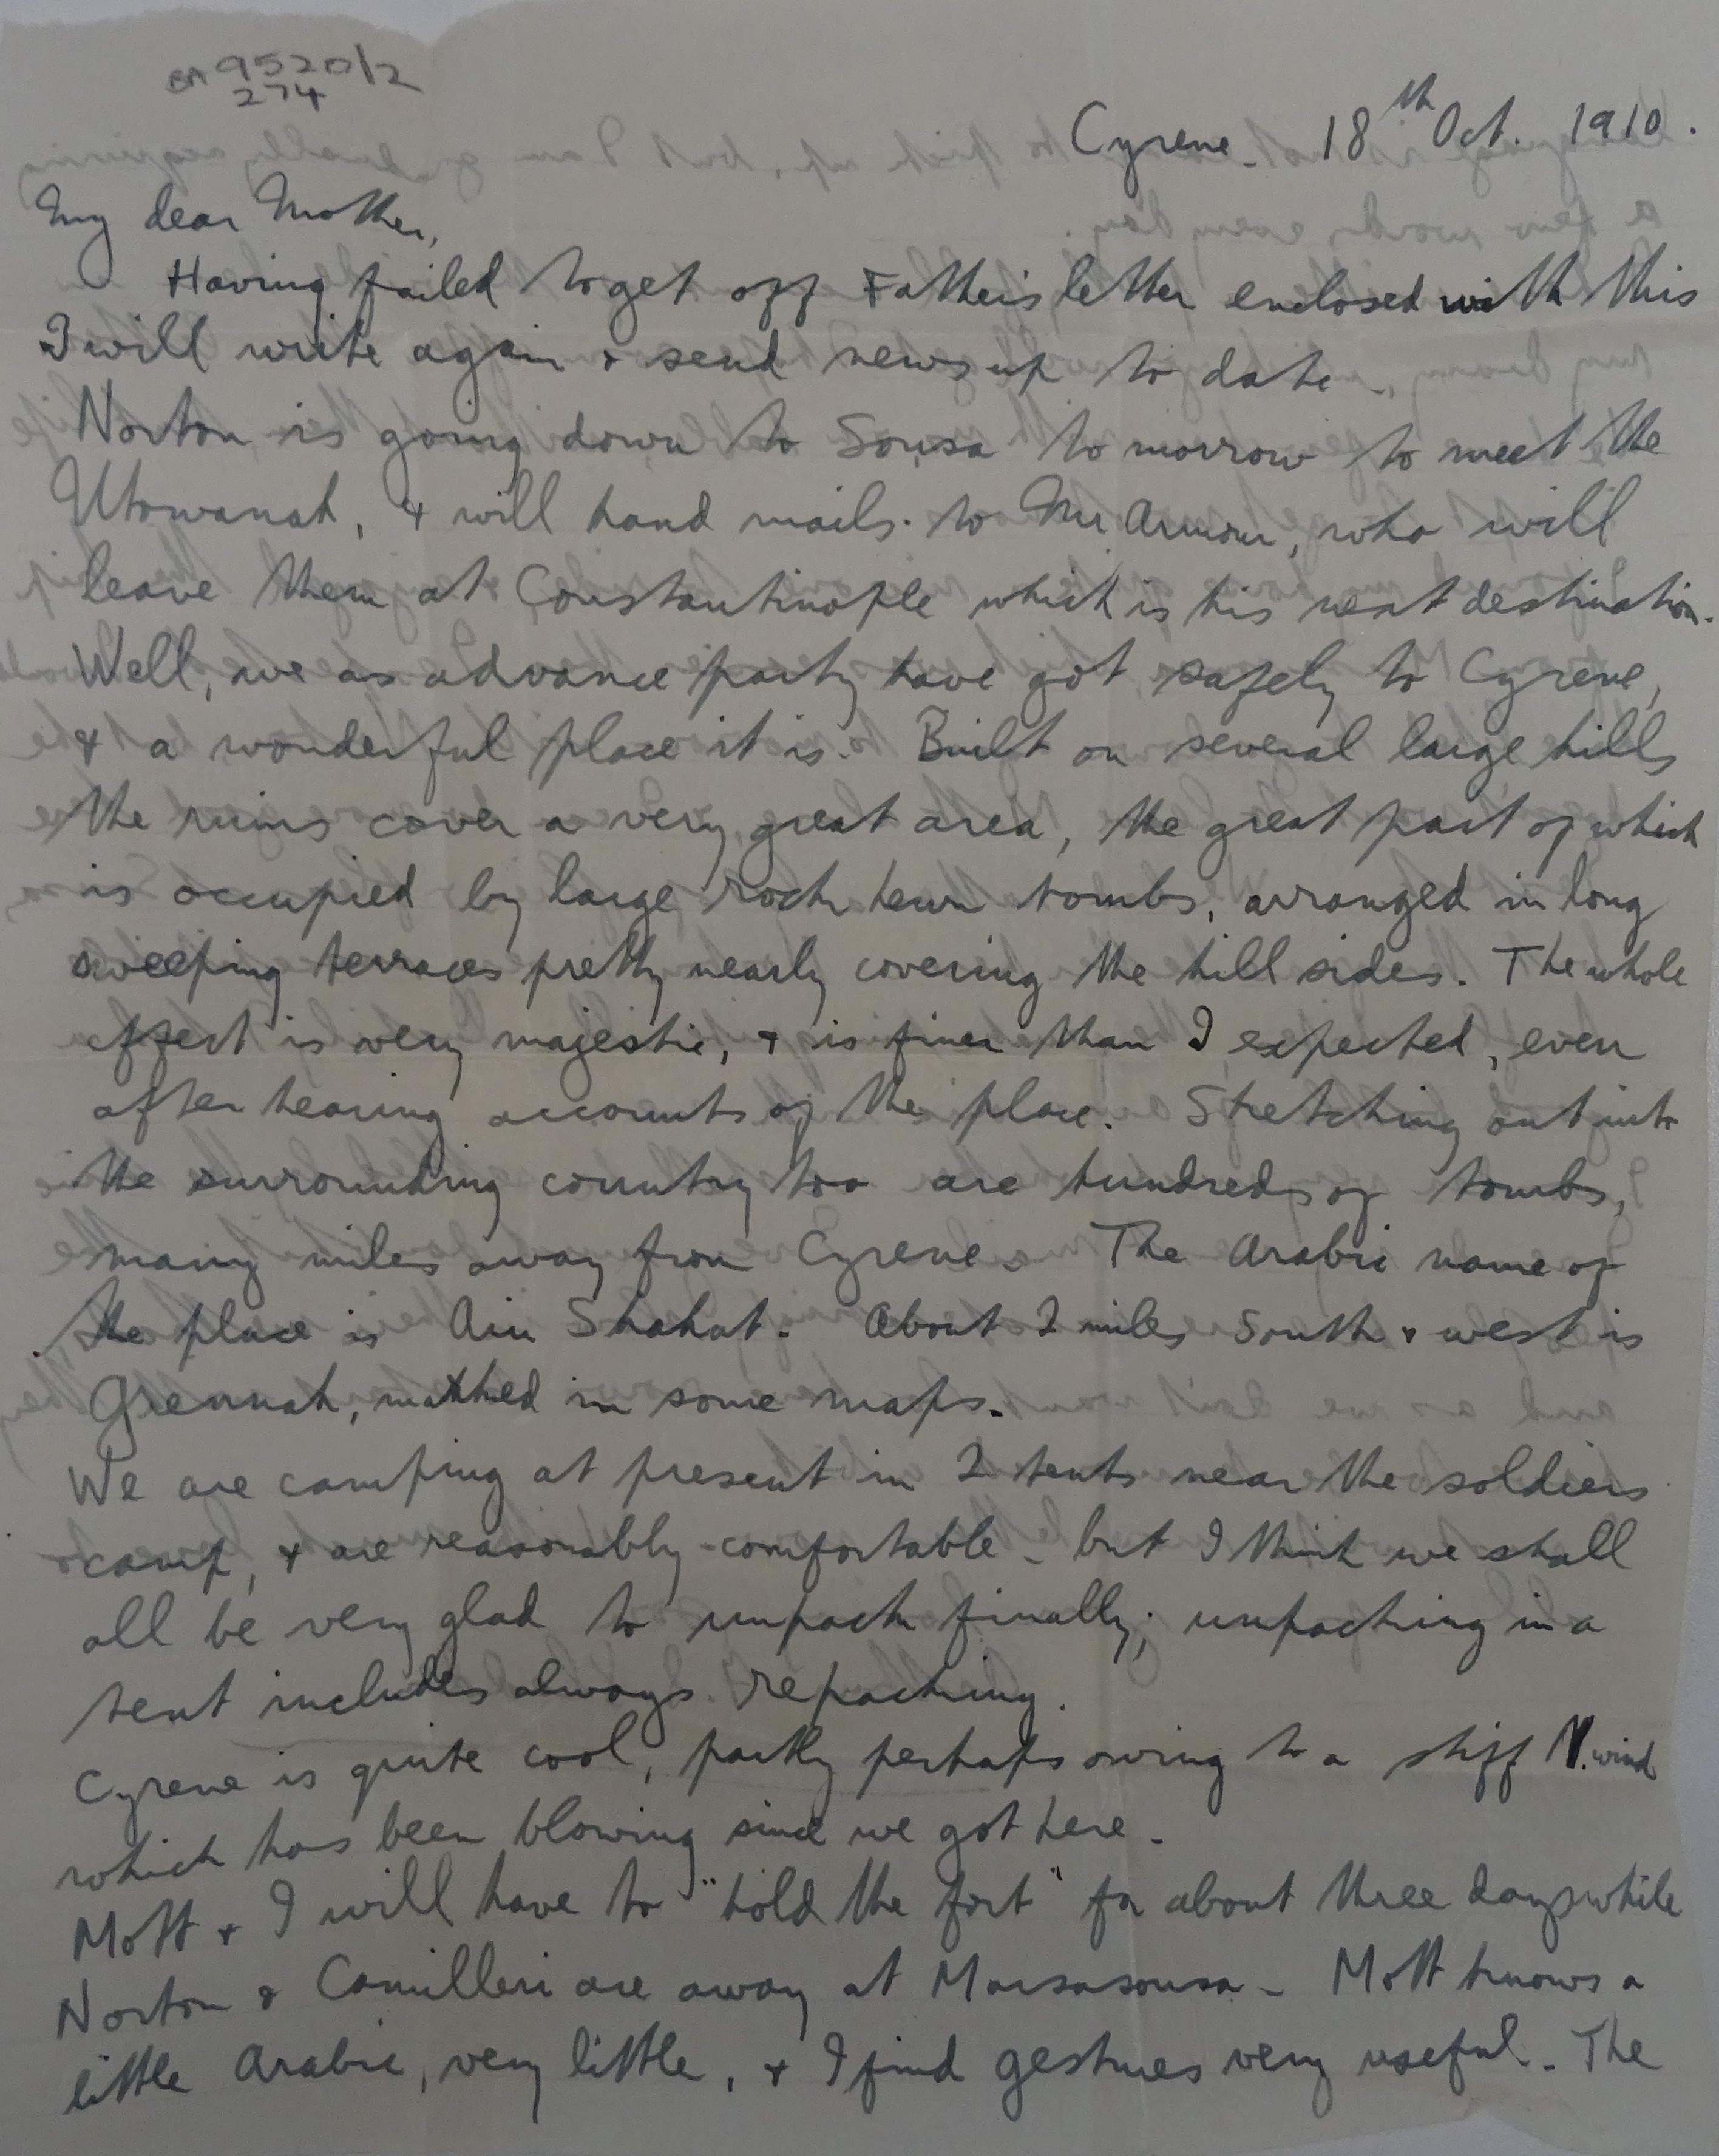 BA 9520/2
274
Cyrene. 18th Oct. 1910.
My dear Mother,
Having failed to get off Father's letter enclosed with this
I will write again & send news up to date.
Norton is going down to Sousa to morrow to meet the
Utowanah, & will hand mails to Mr Armour, who will
leave them at Constantinople which is his next destination.
Well, we as advance party have got safely to Cyrene,
& a wonderful place it is. Built on several large hills
the ruins cover a very great area, the great part of which
is occupied by large rock hewn tombs, arranged in long
sweeping terraces pretty nearly covering the hill sides. The whole
effect is very majestic, & is finer than I expected, even
after hearing accounts of the place. Stretching out into
the surrounding country too are hundreds of tombs,
many miles away from Cyrene. The Arabic name of
the place is Ain Shahat. About 2 miles South & west is
Grennah, marked in some maps.
We are camping at present in 2 tents near the soldiers
camp, & are reasonably comfortable - but I think we shall
all be very glad to unpack finally; unpacking in a
tent includes always repacking.
Cyrene is quite cool, partly perhaps owing to a stiff N. wind
which has been blowing since we got here.
Mott & I will have to "hold the fort" for about three days while
Norton & Camilleri are away at Marsasousa - Mott knows a
little Arabic, very little, & I find gestures very useful. The